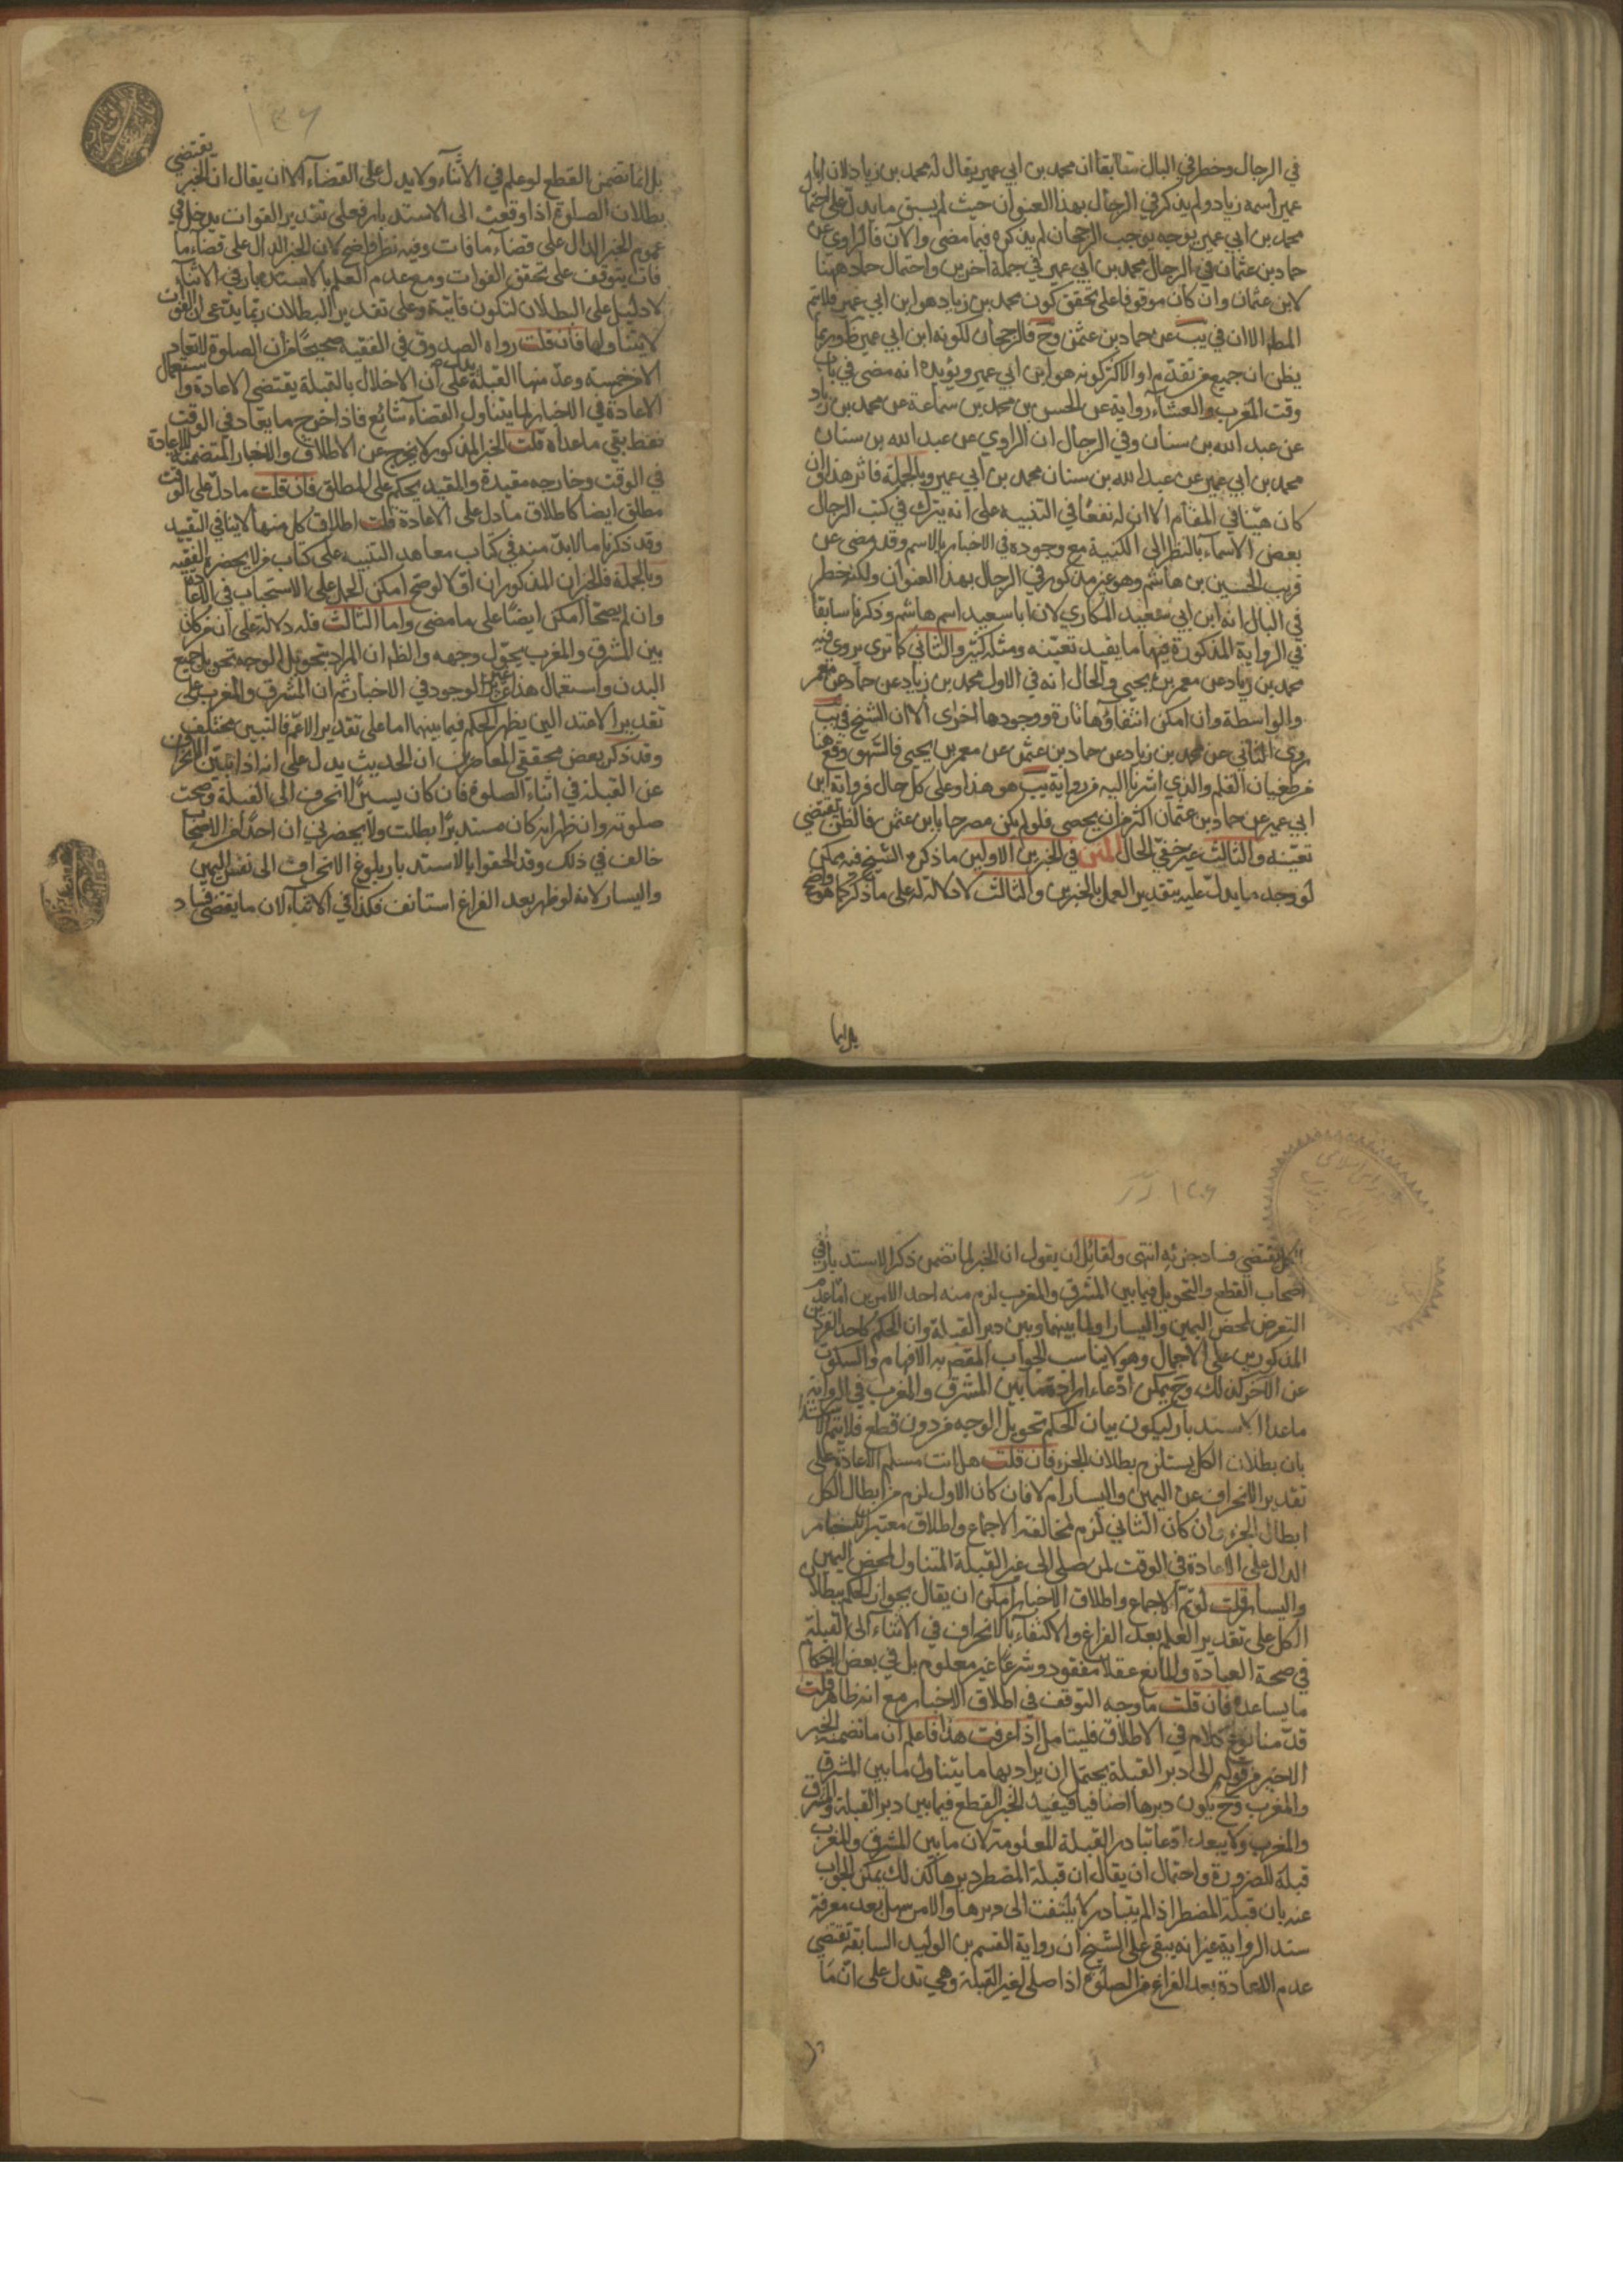 في الرجال وخطر في البال سابقا ان محمد بن ابي عمير يقال له محمد بن زياد لان ابا
عمير اسمه زياد ولم يذكر في الرجال بهذا العنوان حيث لم يسبق ما يدل على احتما
محمد بن ابي عمير بوجه يوجب الرجحان لم يذكره فيما مضى والآن فالراوي عن
حماد بن عثمان في الرجال محمد بن ابي عمير في جملة آخرين واحتمال حماد ههنا
لابن عثمان وان كان موقوفا على تحقق كون محمد بن زياد هو ابن ابي عمير فلا يتم
المط الا ان في يب عن حماد بن عثمن وح فالرجحان لكونه ابن ابي عمير ظ وربما
يظن ان جميع من تقدم او الاكثر كونه هو ابن ابي عمير ويؤيده انه مضى في باب
وقت المغرب والعشاء رواية عن الحسن بن محمد بن سماعة عن محمد بن زياد
عن عبد الله بن سنان وفي الرجال ان الراوي عن عبد الله بن سنان
محمد بن ابي عمير عن عبد الله بن سنان محمد بن ابي عمير وبالجملة فاثر هذا وان
كان هينا في المقام الا ان له نفعا في التنبيه على انه يترك في كتب الرجال
بعض الاسماء بالنظر الى الكنية مع وجوده في الاخبار بالاسم وقد مضى عن
قريب الحسين بن هاشم وهو غير مذكور في الرجال بهذا العنوان ولكن خطر
في البال انه ابن ابي سعيد المكاري لان ابا سعيد اسمه هاشم وذكرنا سابقا
في الرواية المذكورة فيها ما يفيد تعينه ومثله كثير والثاني كما ترى يروي فيه
محمد بن زياد عن معمر بن يحيى والحال انه في الاول محمد بن زياد عن حماد عن معمر
والواسطة وان امكن انتفاؤها تارة ووجودها اخرى الا ان الشيخ في يب
روى الثاني عن محمد بن زياد عن حماد بن عثمن عن معمر بن يحيى فالسهو وقع هنا
من طغيان القلم والذي اشرنا اليه من رواية يب هو هذا وعلى كل حال فرواية ابن
ابي عمير عن حماد بن عثمان اكثر من ان يحصى فلو لم يكن مصرحا بابن عثمن فالظن يقتضي
تعينه والثالث غير خفي الحال المتن في الخبرين الاولين ما ذكره الشيخ فيه ممكن
لو وجد ما يدل عليه بتقدير العمل بالخبرين والثالث لا دلالة له على ما ذكر كما هو واضح
بل انما
١٣٦
بل انما تضمن القطع لو علم في الاثناء ولا يدل على القضاء الا ان يقال ان الخبر يقتضي
بطلان الصلوة اذا وقعت الى الاستدبار فعلى تقدير الفوات يدخل في
عموم الخبر الدال على قضاء ما فات وفيه نظر واضح لان الخبر الدال على قضاء ما
فات يتوقف على تحقق الفوات ومع عدم العلم بالاستدبار في الاثناء
لا دليل على البطلان لتكون فايتة وعلى تقدير البطلان ربما يدعى ان الفوت
لا يتناولها فان قلت رواه الصدوق في الفقيه صحيحا من ان الصلوة لا تعاد
الا من خمسة وعد منها القبلة يدل على ان الاخلال بالقبلة يقتضي الاعادة واستعمال
الاعادة في الاخبار لما يتناول القضاء شائع فاذا خرج ما يعاد في الوقت
فقط بقي ما عداه قلت الخبر المذكور لا يخرج عن الاطلاق والاخبار المتضمنة للاعادة
في الوقت وخارجه مقيدة والمقيد يحكم على المطلق فان قلت ما دل على الوقت
مطلق ايضا كاطلاق ما دل على الاعادة قلت اطلاق كل منهما لا ينافي التقييد
وقد ذكرنا ما لا بد منه في كتاب معاهد التنبيه على كتاب من لا يحضره الفقيه
وبالجملة فالخبران المذكوران اولا لو صح امكن الحمل على الاستحباب في الاعادة
وان لم يصحا امكن ايضا على ما مضى واما الثالث فله دلالة على ان من كان
بين المشرق والمغرب يحول وجهه والظ ان المراد بتحويل الوجه تحويل جميع
البدن واستعمال هذا غير الموجود في الاخبار ثم ان المشرق والمغرب على
تقدير الاعتدالين يظهر الحكم فيما بينهما اما على تقدير الاعم فالتبيين مختلف
وقد ذكر بعض محققي المعاصرين ان الحديث يدل على انه اذا تبين الانحراف
عن القبلة في اثناء الصلوة فان كان يسيرا انحرف الى القبلة وصحت
صلوته وان ظهر انه كان مستدبرا بطلت ولا يحضرني ان احدا من الاصحاب
خالف في ذلك وقد الحقوا بالاستدبار بلوغ الانحراف الى نفس اليمين
واليسار لانه لو ظهر بعد الفراغ استانف فكذا في الاثناء لان ما يقتضي فساد
الكل يقتضي فساد جزئه انتهى ولقائل ان يقول ان الخبر لما تضمن ذكر الاستدبار في
اصحاب القطع والتحويل فيما بين المشرق والمغرب لزم منه احد الامرين اما عدم
التعرض لمحض اليمين واليسار او لما بينهما وبين دبر القبلة وان الحكم كاحد الفردين
المذكورين على الاجمال وهو لا يناسب الجواب المقصد به الافهام والسكوت
عن الآخر كذلك وح يمكن ادعاء ارادة ما بين المشرق والمغرب في الرواية
ما عدا الاستدبار ليكون بيان الحكم تحويل الوجه من دون قطع فلا يتم
بان بطلان الكل يستلزم بطلان الجزء فان قلت هل انت مسلم الاعادة على
تقدير الانحراف عن اليمين واليسار ام لا فان كان الاول لزم من ابطال الكل
ابطال الجزء وان كان الثاني لزم مخالفة الاجماع واطلاق معتبر الاخبار
الدال على الاعادة في الوقت لمن صلى الى غير القبلة المتناول لمحض اليمين
واليسار قلت لو تم الاجماع واطلاق الاخبار امكن ان يقال بجواز الحكم ببطلان
الكل على تقدير العلم بعد الفراغ والاكتفاء بالانحراف في الاثناء الى القبلة
في صحة العبادة والمانع عقلا مفقود وشرعا غير معلوم بل في بعض الاحكام
ما يساعده فان قلت ما وجه التوقف في اطلاق الاخبار مع انه ظاهر قلت
قدمنا نوع كلام في الاطلاق فليتامل اذا عرفت هذا فاعلم ان ما تضمنه الخبر
الاخير من قوله الى دبر القبلة يحتمل ان يراد بها ما يتناول ما بين المشرق
والمغرب وح يكون دبرها اضافيا فيفيد الخبر القطع فيما بين دبر القبلة والمشرق
والمغرب ولا يبعد ادعا تبادر القبلة المعلومة لان ما بين المشرق والمغرب
قبلة للضرورة واحتمال ان يقال ان قبلة المضطر دبرها كذلك يمكن الجواب
عنه بان قبلة المضطر اذا لم يتبادر لا يلتفت الى دبرها والامر سهل بعد معرفة
سند الرواية غير انه يبقى على الشيخ ان رواية القسم بن الوليد السابقة تقتضي
عدم الاعادة بعد الفراغ من الصلوة اذا صلى لغير القبلة وهي تدل على ان ما